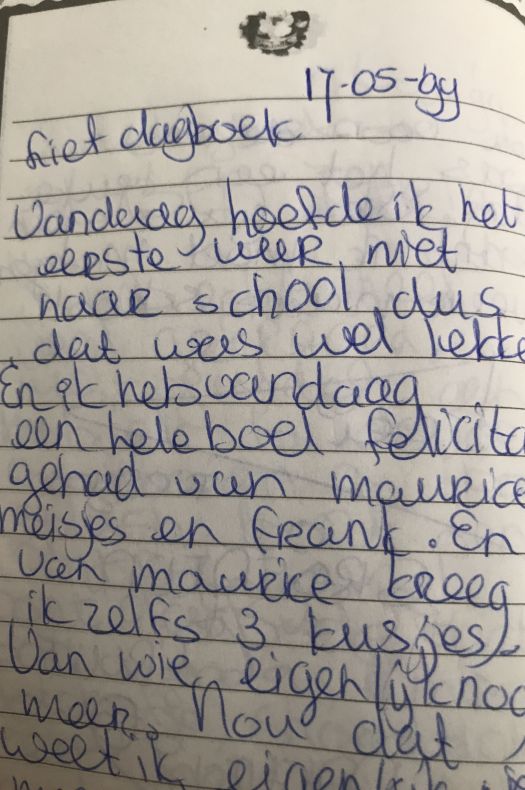 17-05-99
Liet dagboek
Vandaag hoefde ik het
eerste uur niet
naar school, dus
dat was wel lekke
En ik heb vandaag
een heleboel felicita
gehad van maurice
meisjes en Frank. En
van maurice kreeg
ik zelfs 3 kusjes,
Van wie eigenlijk noo
meer. Nou dat
weet ik